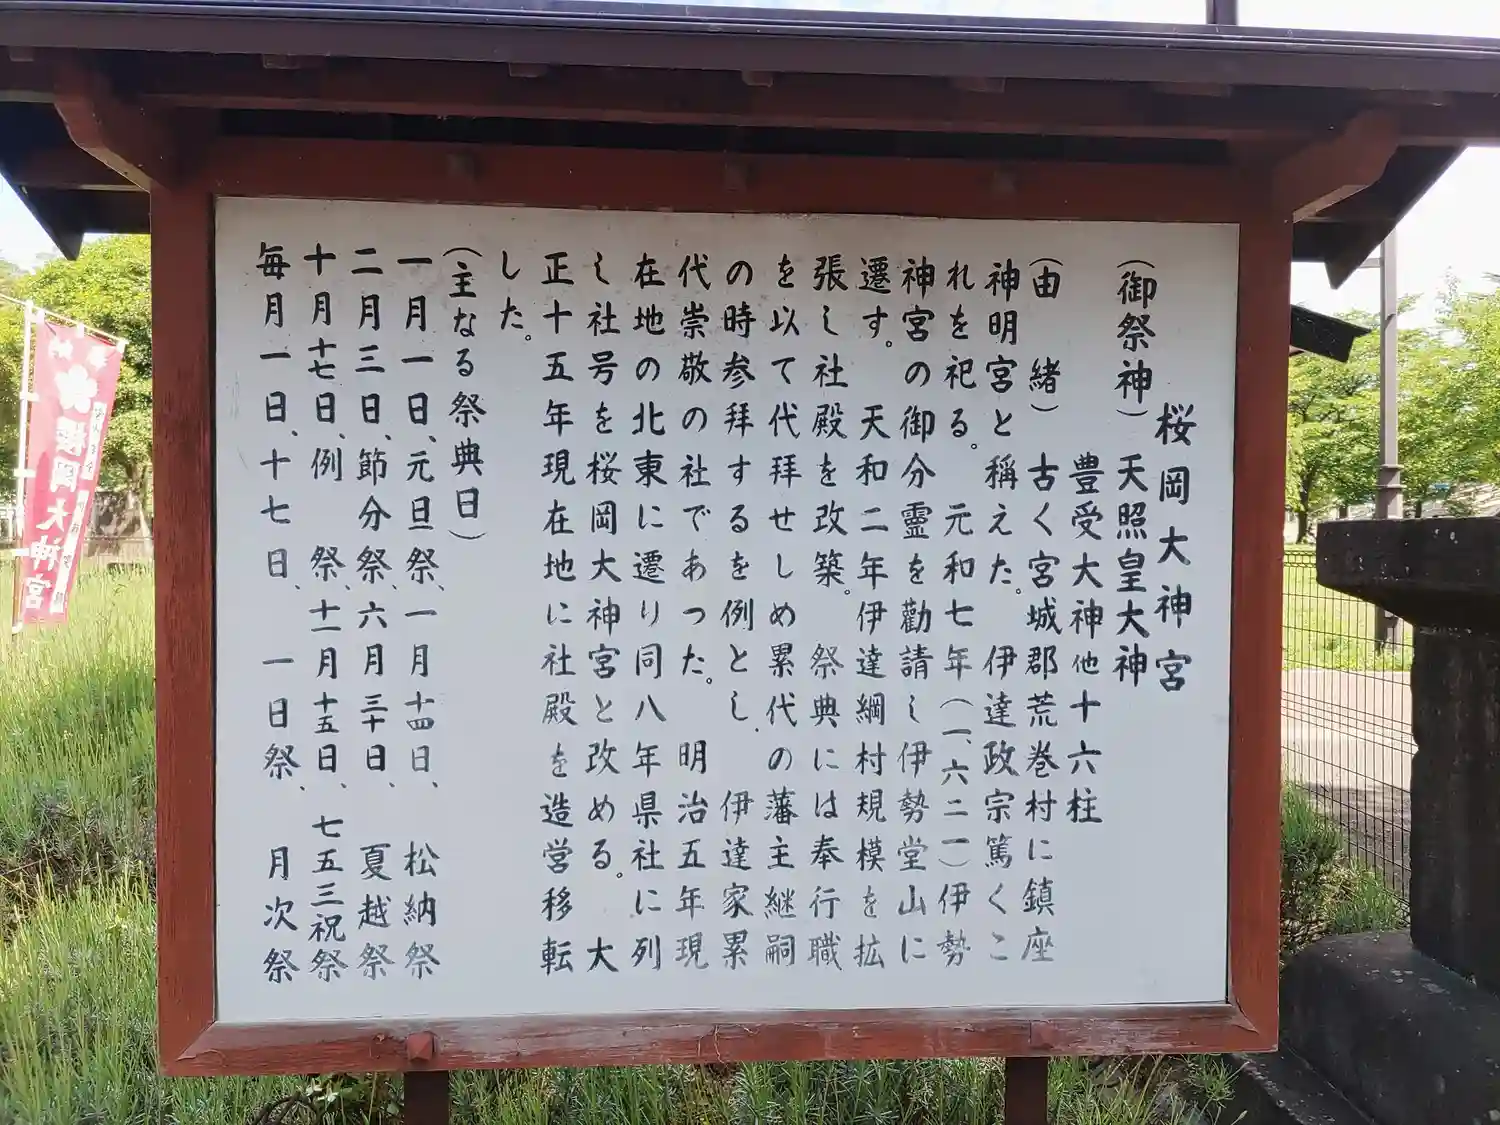 桜岡大神宮
（御祭神）天照皇大神
豊受大神他十六柱
（由　緒）　古く宮城郡荒巻村に鎮座
神明宮と稱えた。　伊達政宗篤くこ
れを祀る。　元和七年（一、六二一）伊勢
神宮の御分霊を勸請し伊勢堂山に
遷す。　天和二年伊達綱村規模を拡
張し社殿を改築。　祭典には奉行職
を以て代拝せしめ累代の藩主継嗣
の時参拝するを例とし、　伊達家累
代崇敬の社であった。　明治五年現
在地の北東に遷り同八年県社に列
し社号を桜岡大神宮と改める。　大
正十五年現在地に社殿を造営移転
した。
（主なる祭典日）
一月一日、元旦祭、一月十四日、　松納祭
二月三日、節分祭、六月三十日、　夏越祭
十月十七日、例　祭、十一月十五日、七五三祝祭
毎月一日、十七日、　一日祭、　月次祭
櫻岡大神宮